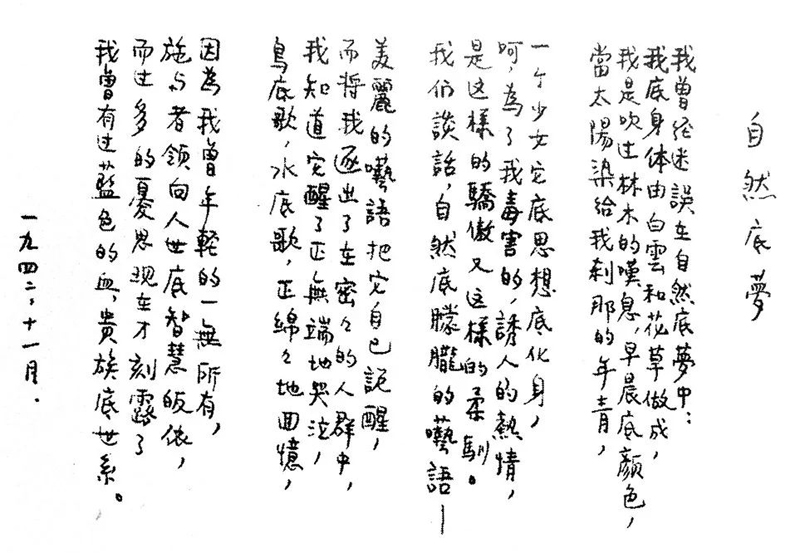 自然底夢
我曾經迷誤在自然底夢中：
我底身体由白雲和花草做成，
我是吹过林木的嘆息，早晨底顏色，
當太陽染給我剎那的年青，
一个少女它底思想底化身，
呵，為了我毒害的，誘人的熱情，
是这樣的驕傲又这樣的柔馴。
我们談話，自然底朦朧的囈語—
美麗的囈語把它自己説醒，
而將我逐出了在密々的人群中，
我知道它醒了正無端地哭泣，
鳥底歌，水底歌，正綿々地回憶，
因為我曾年輕的一無所有，
施与者領向人世底智慧皈依，
而过多的憂思現在才刻露了
我曾有过藍色的血，貴族底世系。
一九四二，十一月．